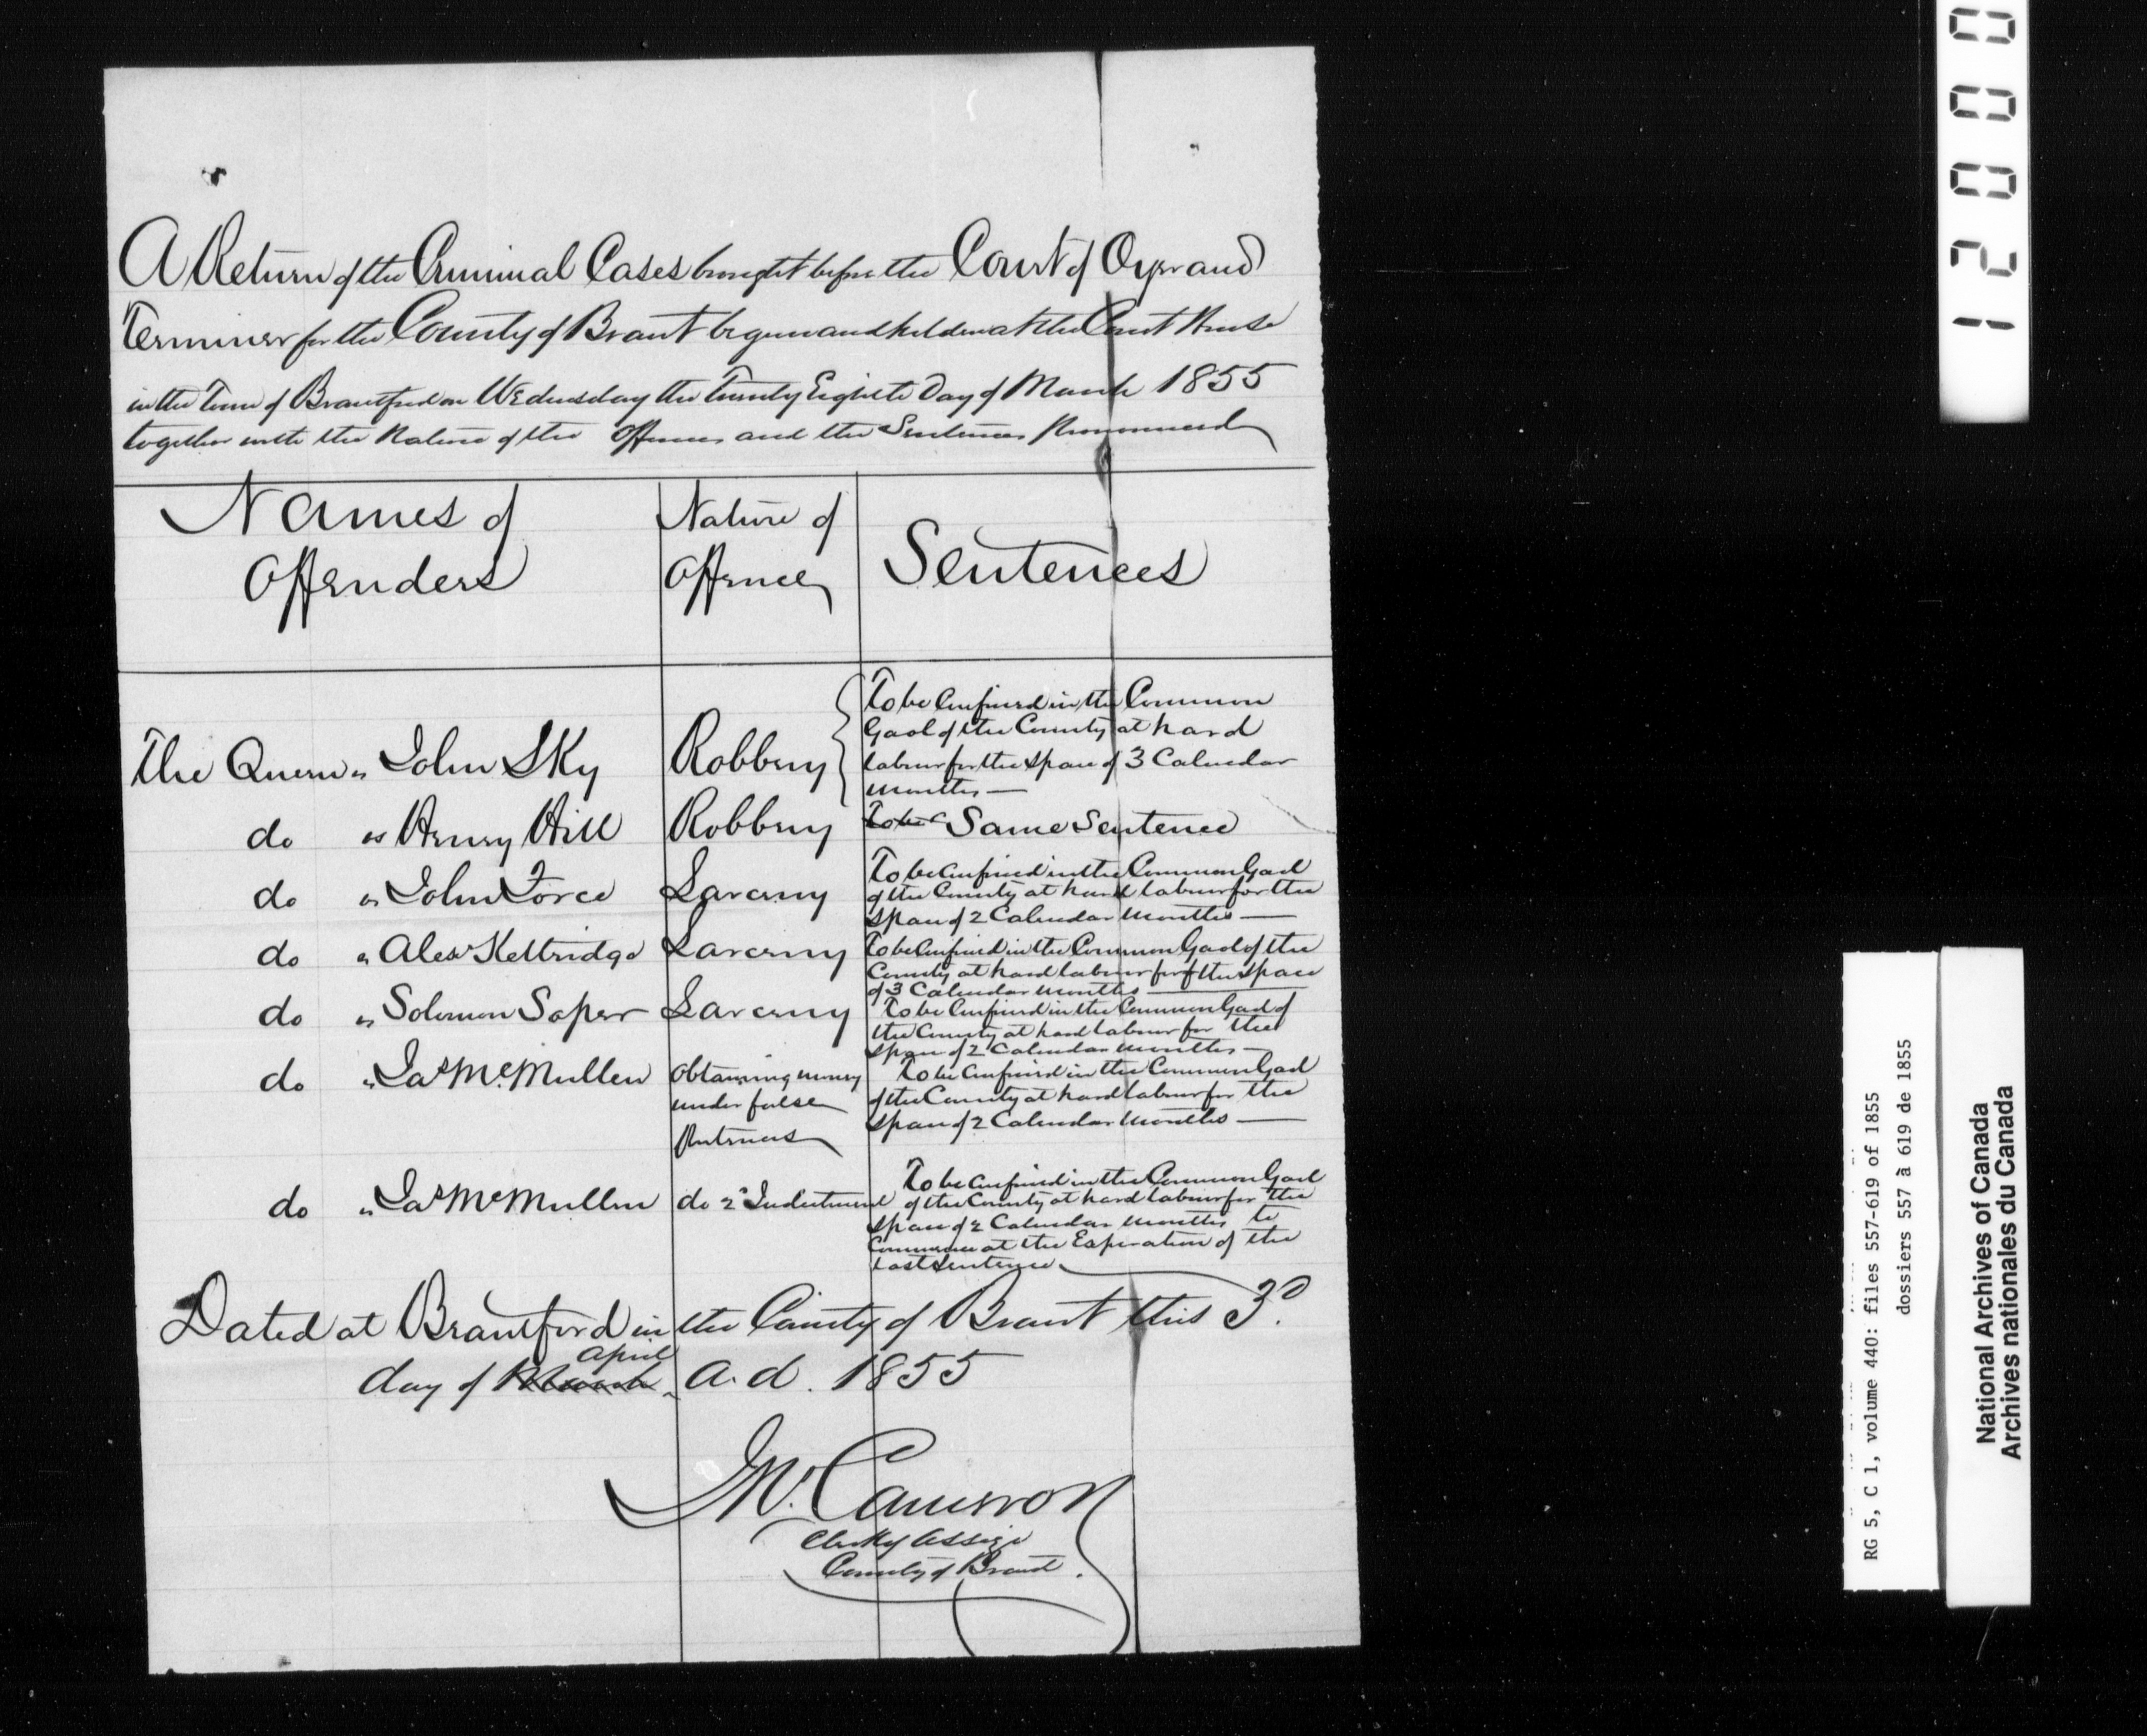 A Return of the Criminal Cases brought before the Court of Oyer and
Terminer for the County of Brant begun and holden at the Court House
in the Town of Brantford on Wednesday the Twenty Eighth Day of March 1855
together with the Nature of the Offences and the Sentences Pronounced
Names of
Offenders
Nature of
Offence
Sentences
The Queen vs John Sky
Robbery
To be Confined in the Common
Gaol of the County at hard
labour for the Space of 3 Calendar
months —
do vs Henry Hill
Robbery
To be Same Sentence
do vs John Force
Larceny
To be Confined in the Common Gaol
of the County at hard labour for the
Space of 2 Calendar months —
do vs Alex Kettridge
Larceny
To be Confined in the Common Gaol of the
County at hard labour for the Space
of 3 Calendar months —
do vs Solomon Soper
Larceny
To be Confined in the Common Gaol of
the County at hard labour for the
Space of 2 Calendar months —
do vs Jas McMullen
Obtaining money
under false
Pretences
To be Confined in the Common Gaol
of the County at hard labour for the
Space of 2 Calendar months —
do vs Jas McMullen
do 2d Indictment
To be Confined in the Common Gaol
of the County at hard labour for the
Space of 2 Calendar months to
Commence at the Expiration of the
last Sentence
Dated at Brantford in the County of Brant this 3d.
day of March April A.D. 1855
J W. Cameron
Clerk of Assize
County of Brant.
12000
RG 5, C 1, volume 440: files 557-619 of 1855
dossiers 557 à 619 de 1855
National Archives of Canada
Archives nationales du Canada